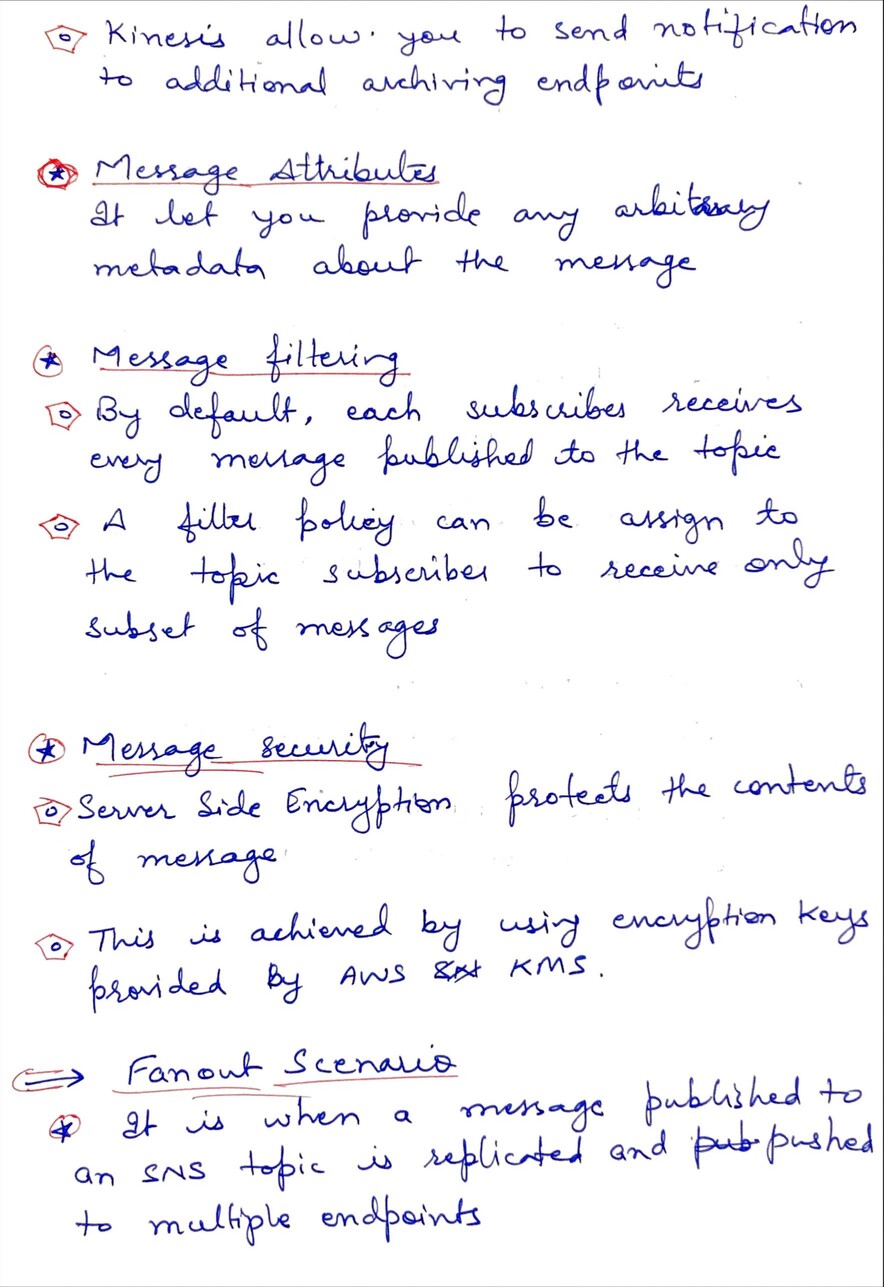 Kinesis allow you to send notification
to additional archiving endpoints
Message Attributes
It let you provide any arbitrary
metadata about the message
Message filtering
By default, each subscribes receives
every message published to the topic
A filter policy can be assign to
the topic subscriber to receive only
subset of messages
Message security
Server Side Encryption protects the contents
of message
This is achieved by using encryption keys
provided By AWS KMS.
Fanout Scenario
It is when a message published to
an SNS topic is replicated and pub pushed
to multiple endpoints